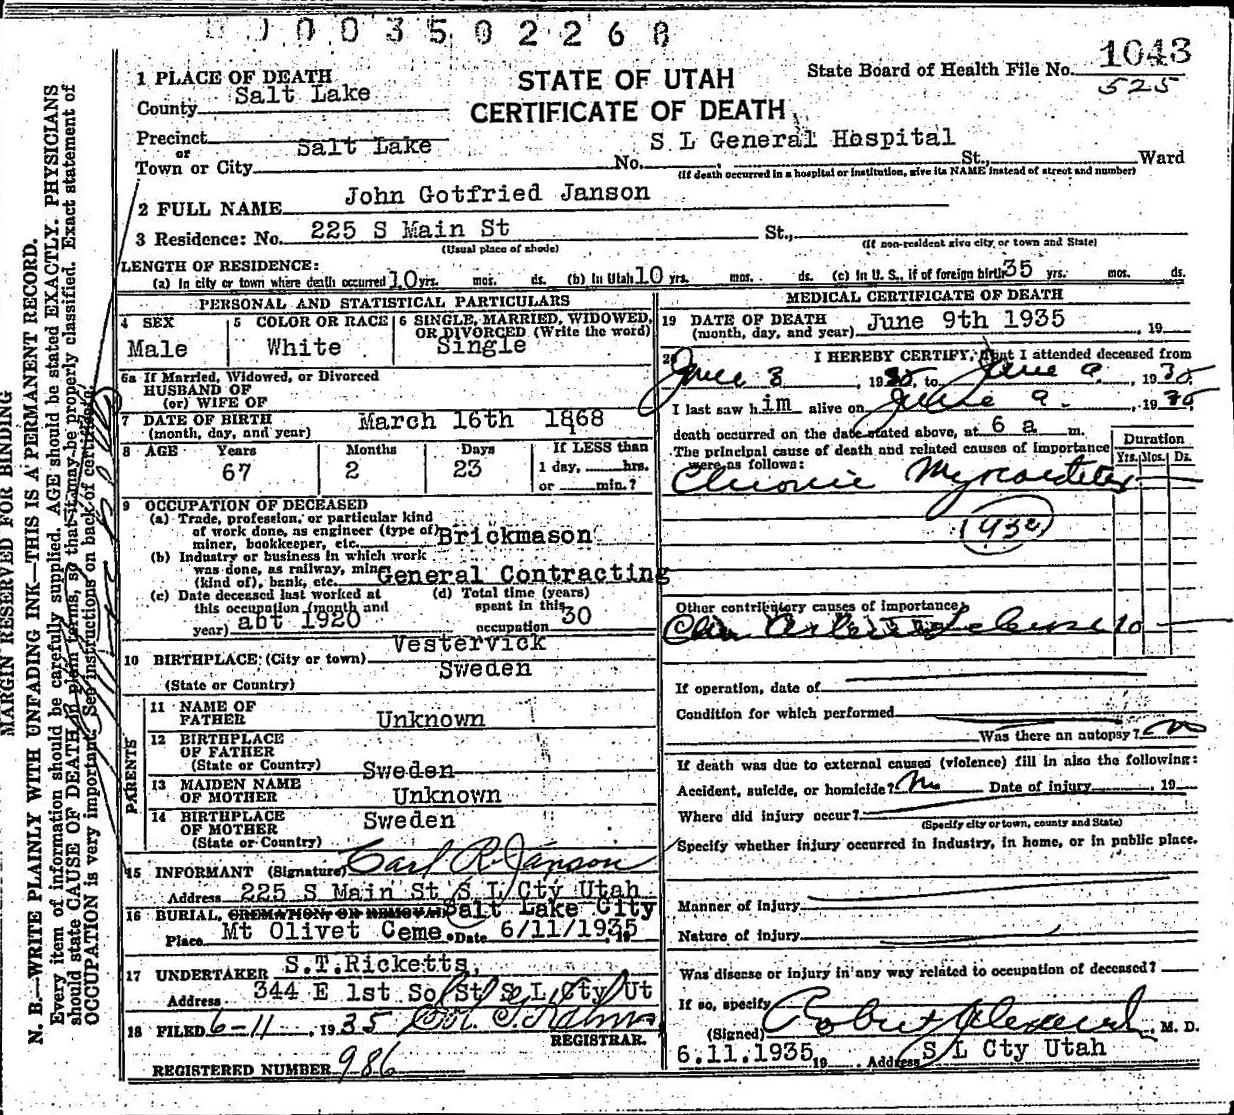 0003502268
1 PLACE OF DEATH
STATE OF UTAH
State Board of Health File No. 1043
County Salt Lake
525
CERTIFICATE OF DEATH
Precinct
or
Salt Lake
S L General Hospital
Town or City No. St., Ward
(If death occurred in a hospital or institution, give its NAME instead of street and number)
2 FULL NAME John Gotfried Janson
3 Residence: No. 225 S Main St St.,
(Usual place of abode) (If non-resident give city or town and State)
LENGTH OF RESIDENCE:
(a) In city or town where death occurred 10 yrs. mos. ds. (b) In Utah 10 yrs. mos. ds. (c) In U. S., if of foreign birth 35 yrs. mos. ds.
PERSONAL AND STATISTICAL PARTICULARS
4 SEX Male
5 COLOR OR RACE White
6 SINGLE, MARRIED, WIDOWED,
OR DIVORCED (Write the word)
Single
6a If Married, Widowed, or Divorced
HUSBAND OF
(or) WIFE OF
7 DATE OF BIRTH March 16th 1868
(month, day, and year)
8 AGE Years Months Days If LESS than
67 2 23 1 day, hrs.
or min.?
9 OCCUPATION OF DECEASED
(a) Trade, profession, or particular kind
of work done, as engineer (type of)
miner, bookkeeper, etc. Brickmason
(b) Industry or business in which work
was done, as railway, mine
(kind of), bank, etc. General Contracting
(c) Date deceased last worked at
this occupation (month and
year) abt 1920
(d) Total time (years)
spent in this
occupation 30
Vestervick
10 BIRTHPLACE: (City or town)
Sweden
(State or Country)
PARENTS
11 NAME OF
FATHER Unknown
12 BIRTHPLACE
OF FATHER
(State or Country) Sweden
13 MAIDEN NAME
OF MOTHER Unknown
14 BIRTHPLACE Sweden
OF MOTHER
(State or Country)
15 INFORMANT (Signature) Carl R. Janson
Address 225 S Main St S L Cty Utah
16 BURIAL, CREMATION, OR REMOVAL Salt Lake City
Place Mt Olivet Ceme. Date 6/11/1935 19
17 UNDERTAKER S.T.Ricketts,
Address 344 E 1st So St S L Cty Ut
18 FILED 6-11, 1935
REGISTRAR.
REGISTERED NUMBER 986
MEDICAL CERTIFICATE OF DEATH
19 DATE OF DEATH June 9th 1935
(month, day, and year) , 19
20 I HEREBY CERTIFY, that I attended deceased from
June 3, 1935, to June 9, 1935,
I last saw him alive on June 9, 1935,
death occurred on the date stated above, at 6 a m.
The principal cause of death and related causes of importance
were as follows:
Duration
Yrs. Mos. Ds.
Chronic Myocarditis
(932)
Other contributory causes of importance:
Chr Arteriosclerosis 10
If operation, date of
Condition for which performed
Was there an autopsy? no
If death was due to external causes (violence) fill in also the following:
Accident, suicide, or homicide? No Date of injury , 19
Where did injury occur?
(Specify city or town, county and State)
Specify whether injury occurred in industry, in home, or in public place.
Manner of Injury
Nature of injury
Was disease or injury in any way related to occupation of deceased?
If so, specify
(Signed) Robert Alexander, M. D.
6.11.1935 19 Address S L Cty Utah
MARGIN RESERVED FOR BINDING
N. B.—WRITE PLAINLY WITH UNFADING INK—THIS IS A PERMANENT RECORD.
Every item of information should be carefully supplied. AGE should be stated EXACTLY. PHYSICIANS
should state CAUSE OF DEATH in plain terms, so that it may be properly classified. Exact statement of
OCCUPATION is very important. See instructions on back of certificate.